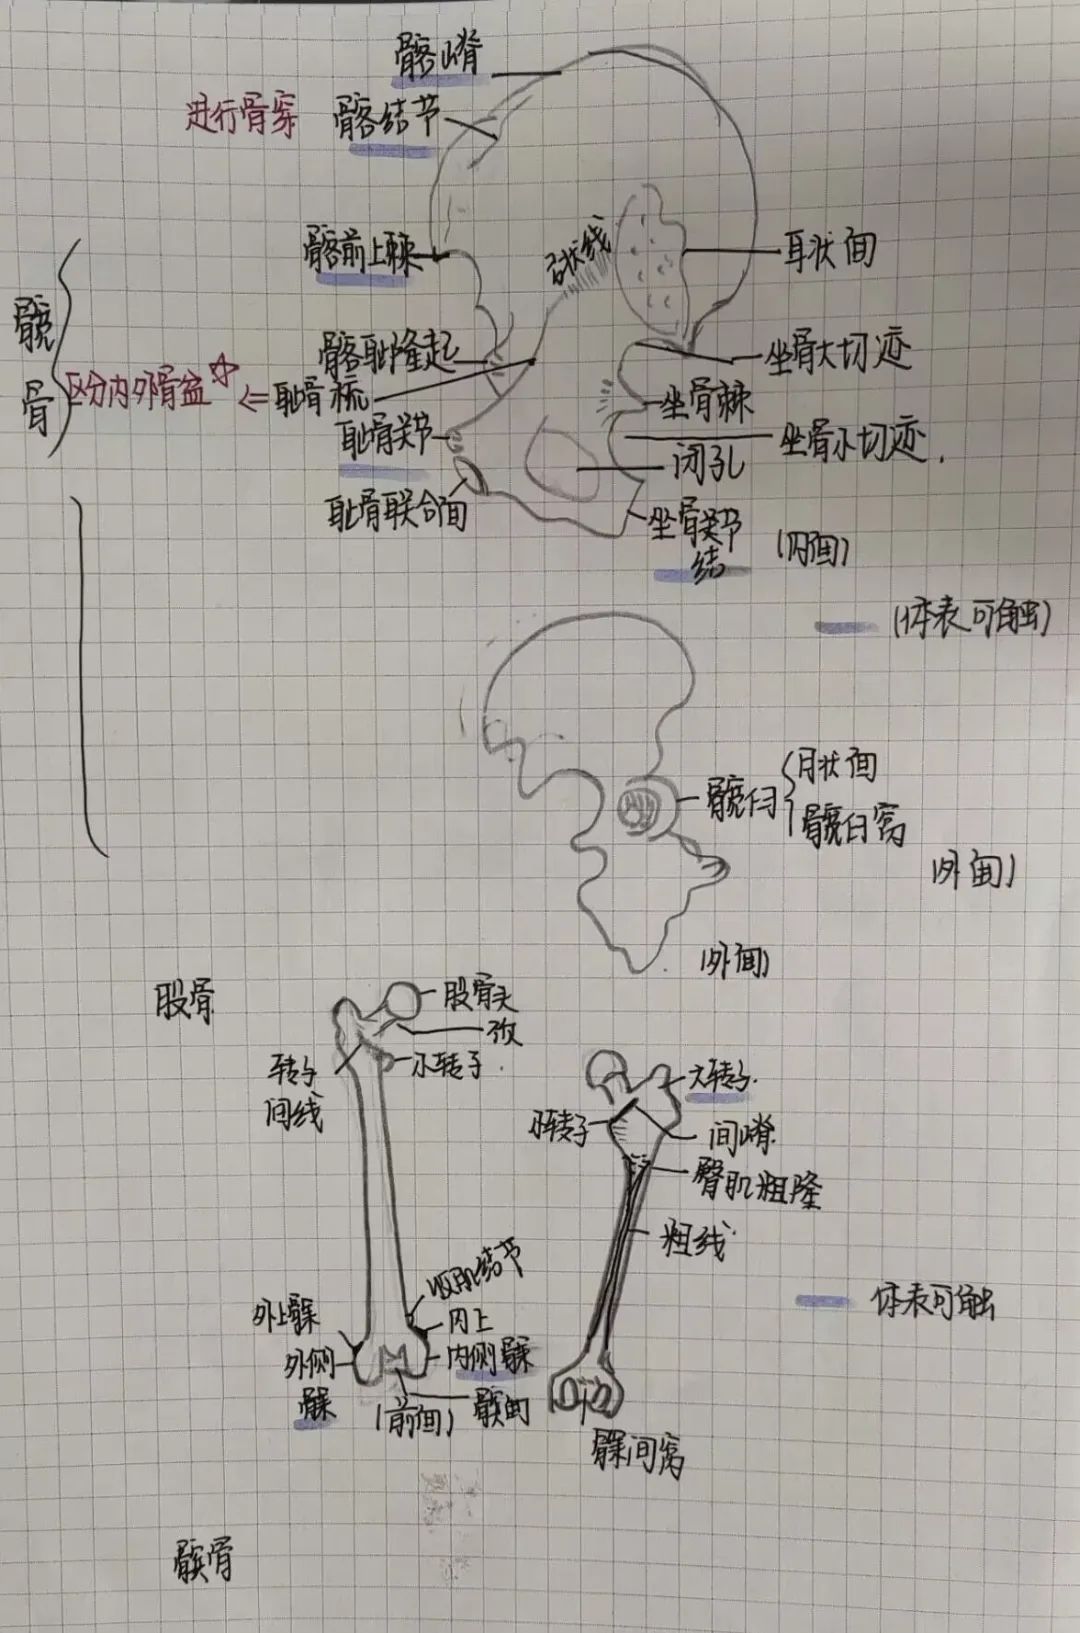 髂嵴
进行骨穿 髂结节
髂前上棘
弓状线
耳状面
髋骨
髂耻隆起
坐骨大切迹
区分内外骨盆☆ ⇐ 耻骨梳
坐骨棘
耻骨关节
坐骨小切迹.
闭孔
耻骨联合面
坐骨关节
结
(内面)
(体表可触)
髋臼
月状面
髋臼窝
(外面)
(外面)
股骨
股骨头
小转子
转子
间线
大转子.
小转子
间嵴
臀肌粗隆
粗线
收肌结节
体表可触
外上髁
内上
外侧
髁
内侧髁
(前面)
髌面
髁间窝
髌骨